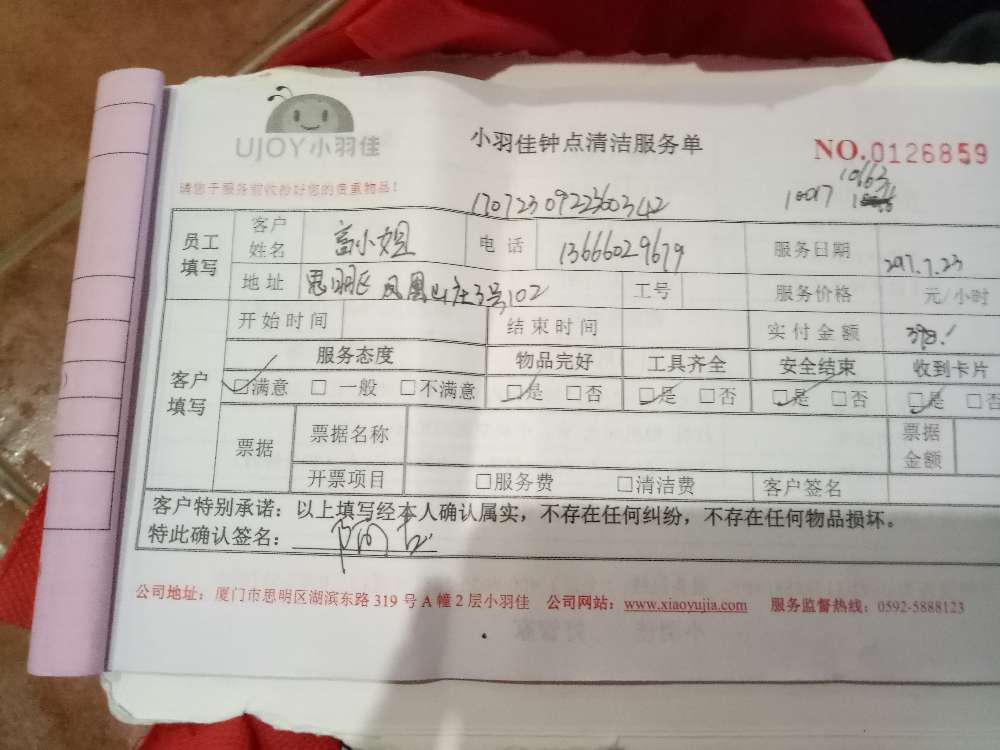 UJOY小羽佳
小羽佳钟点清洁服务单
NO.0126859
请您于服务前收拾好您的贵重物品！
1707230922360342
10017 10163
员工填写 客户姓名 富小姐 电话 13666029679 服务日期 2017.7.23
地址 思明区凤凰山庄3号102 工号 服务价格 元/小时
客户填写 开始时间 结束时间 实付金额 398！
服务态度 物品完好 工具齐全 安全结束 收到卡片
☑满意 □一般 □不满意 ☑是 □否 ☑是 □否 ☑是 □否 ☑是 □否
票据 票据名称 票据金额
开票项目 □服务费 □清洁费 客户签名
客户特别承诺：以上填写经本人确认属实，不存在任何纠纷，不存在任何物品损坏。
特此确认签名：
公司地址：厦门市思明区湖滨东路 319 号 A 幢 2 层小羽佳 公司网站：www.xiaoyujia.com 服务监督热线：0592-5888123